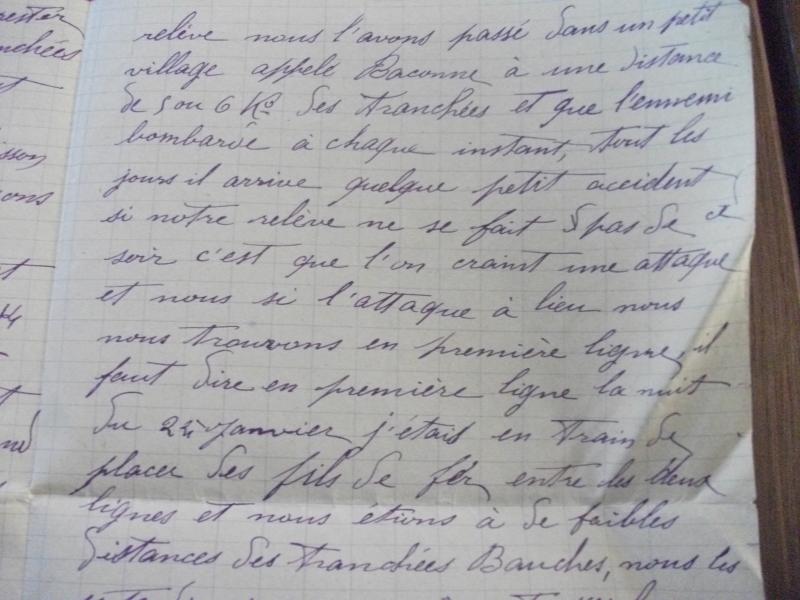 rester
relève nous l'avons passé dans un petit
nchées
village appelé Baconne à une distance
de 5 ou 6 K^o des tranchées et que l'ennemi
bombarde à chaque instant, tout les
jours il arrive quelque petit accident
sson
ons
si notre relève ne se fait pas de ce
soir c'est que l'on craint une attaque
et nous si l'attaque à lieu nous
nous trouvons en première ligne, il
faut dire en première ligne la nuit
du Janvier j'étais en train de
placer des fils de fer entre les deux
lignes et nous étions à de faibles
distances des tranchées Bauches, nous les